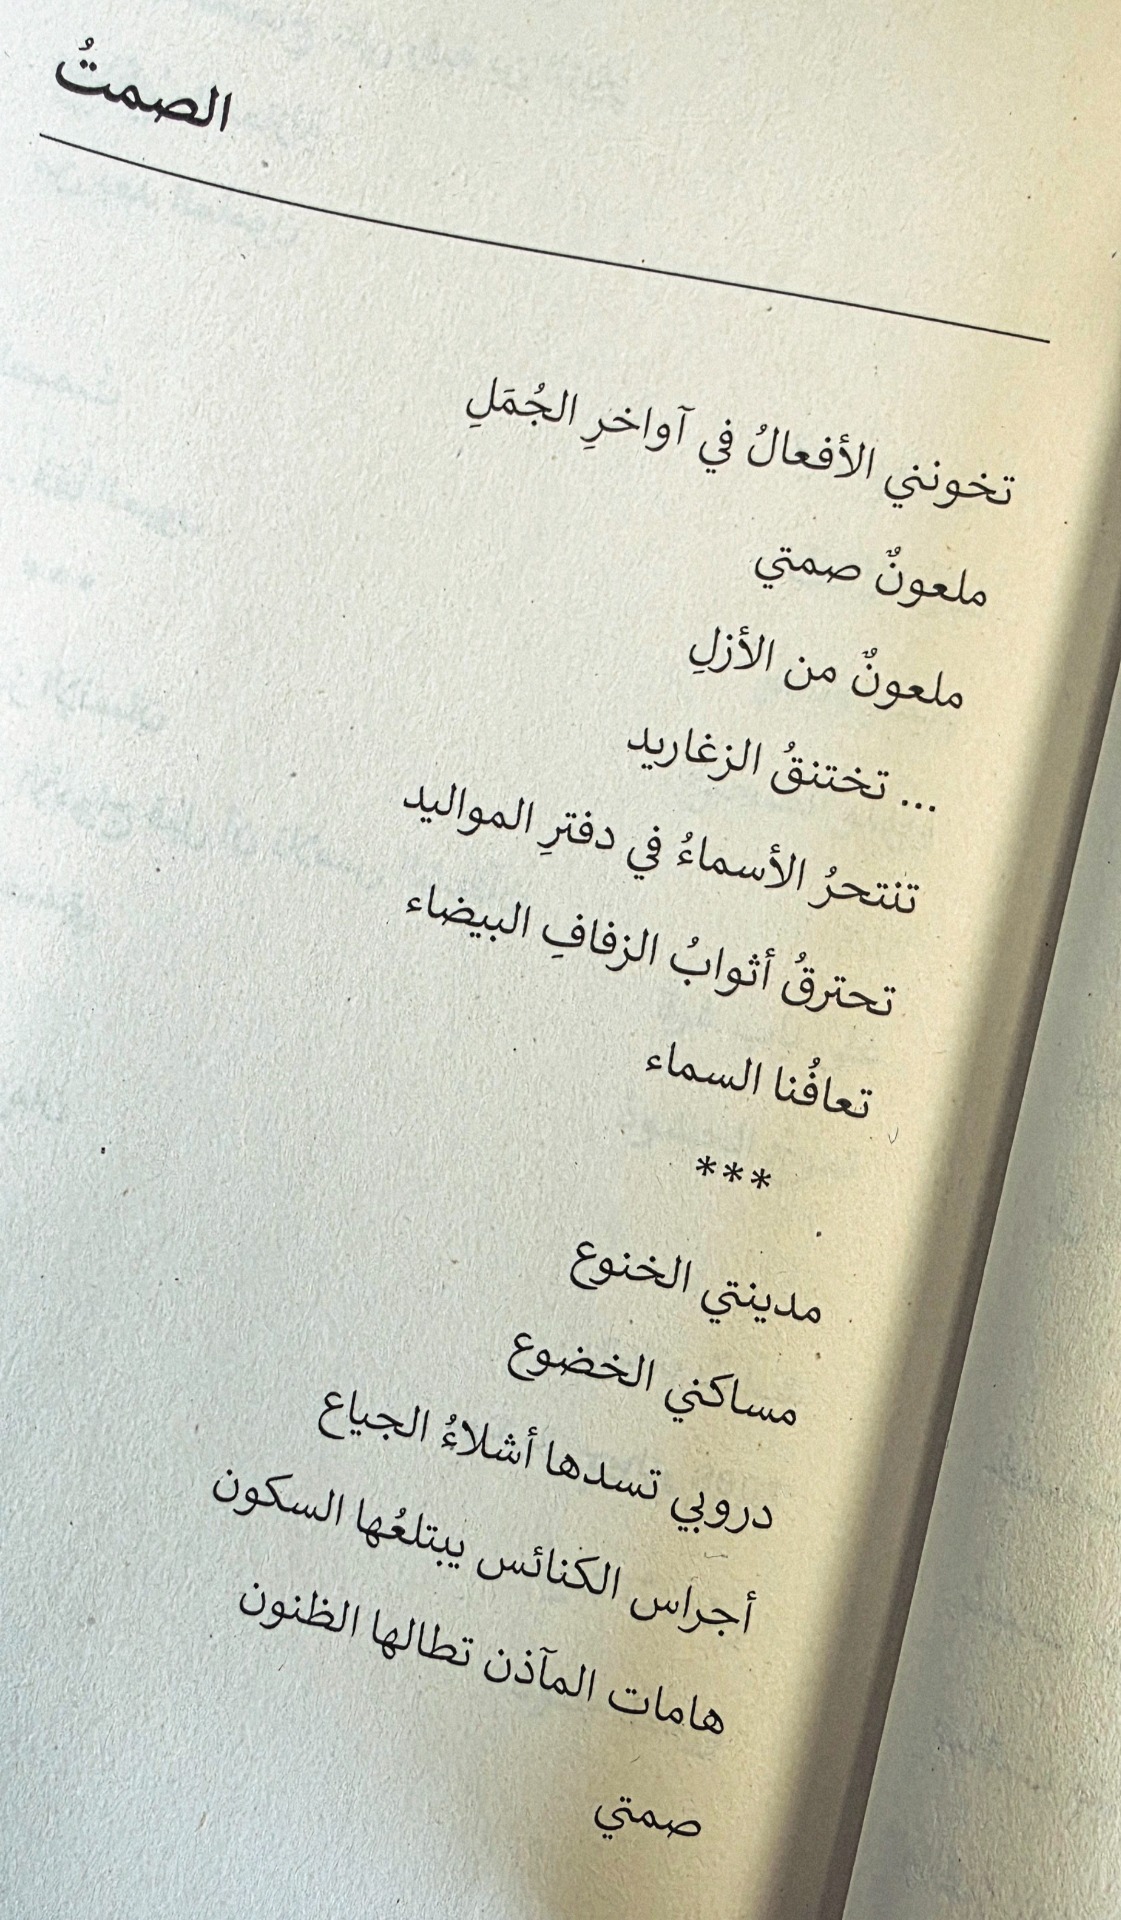 الصمتُ
تخونني الأفعالُ في آواخرِ الجُمَلِ
ملعونٌ صمتي
ملعونٌ من الأزلِ
... تختنقُ الزغاريد
تنتحرُ الأسماءُ في دفترِ المواليد
تحترقُ أثوابُ الزفافِ البيضاء
تعافُنا السماء
***
مدينتي الخنوع
مساكني الخضوع
دروبي تسدها أشلاءُ الجياع
أجراس الكنائس يبتلعُها السكون
هامات المآذن تطالها الظنون
صمتي